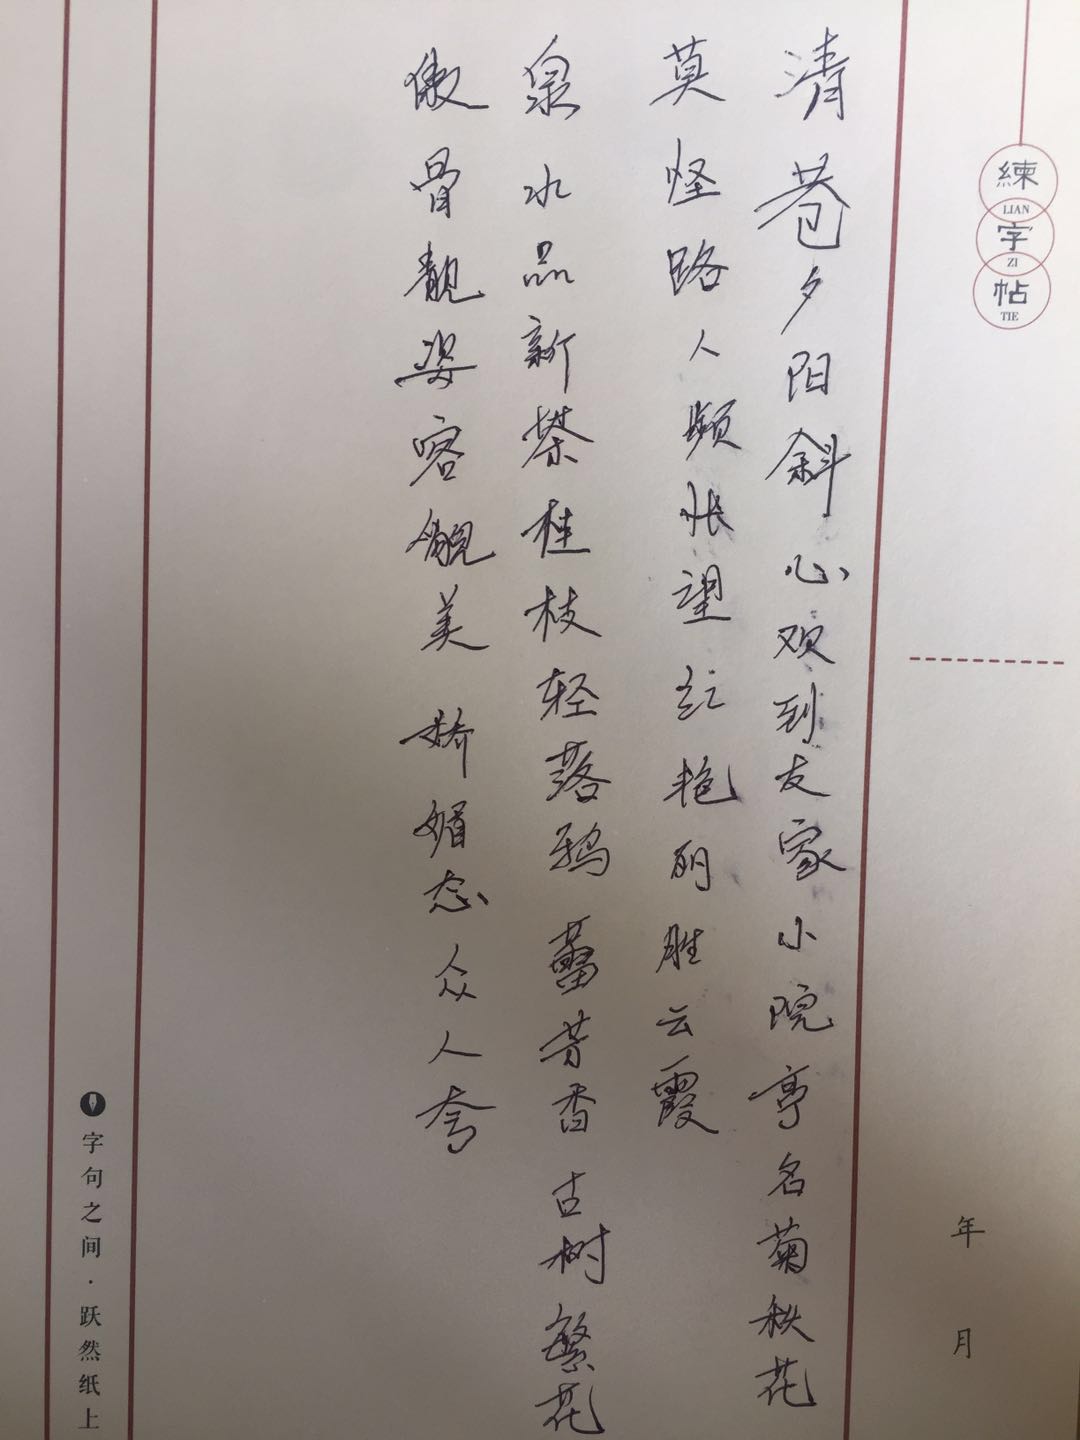 清巷夕阳斜心欢到友家小院亭名菊秋花
莫怪路人频怅望红艳丽胜云霞
泉水品新茶桂枝轻落鸦蕾芳香古树繁花
傲骨靓姿容靓美 娇媚态众人夸
練字帖
LIAN
ZI
TIE
年
月
字句之间·跃然纸上